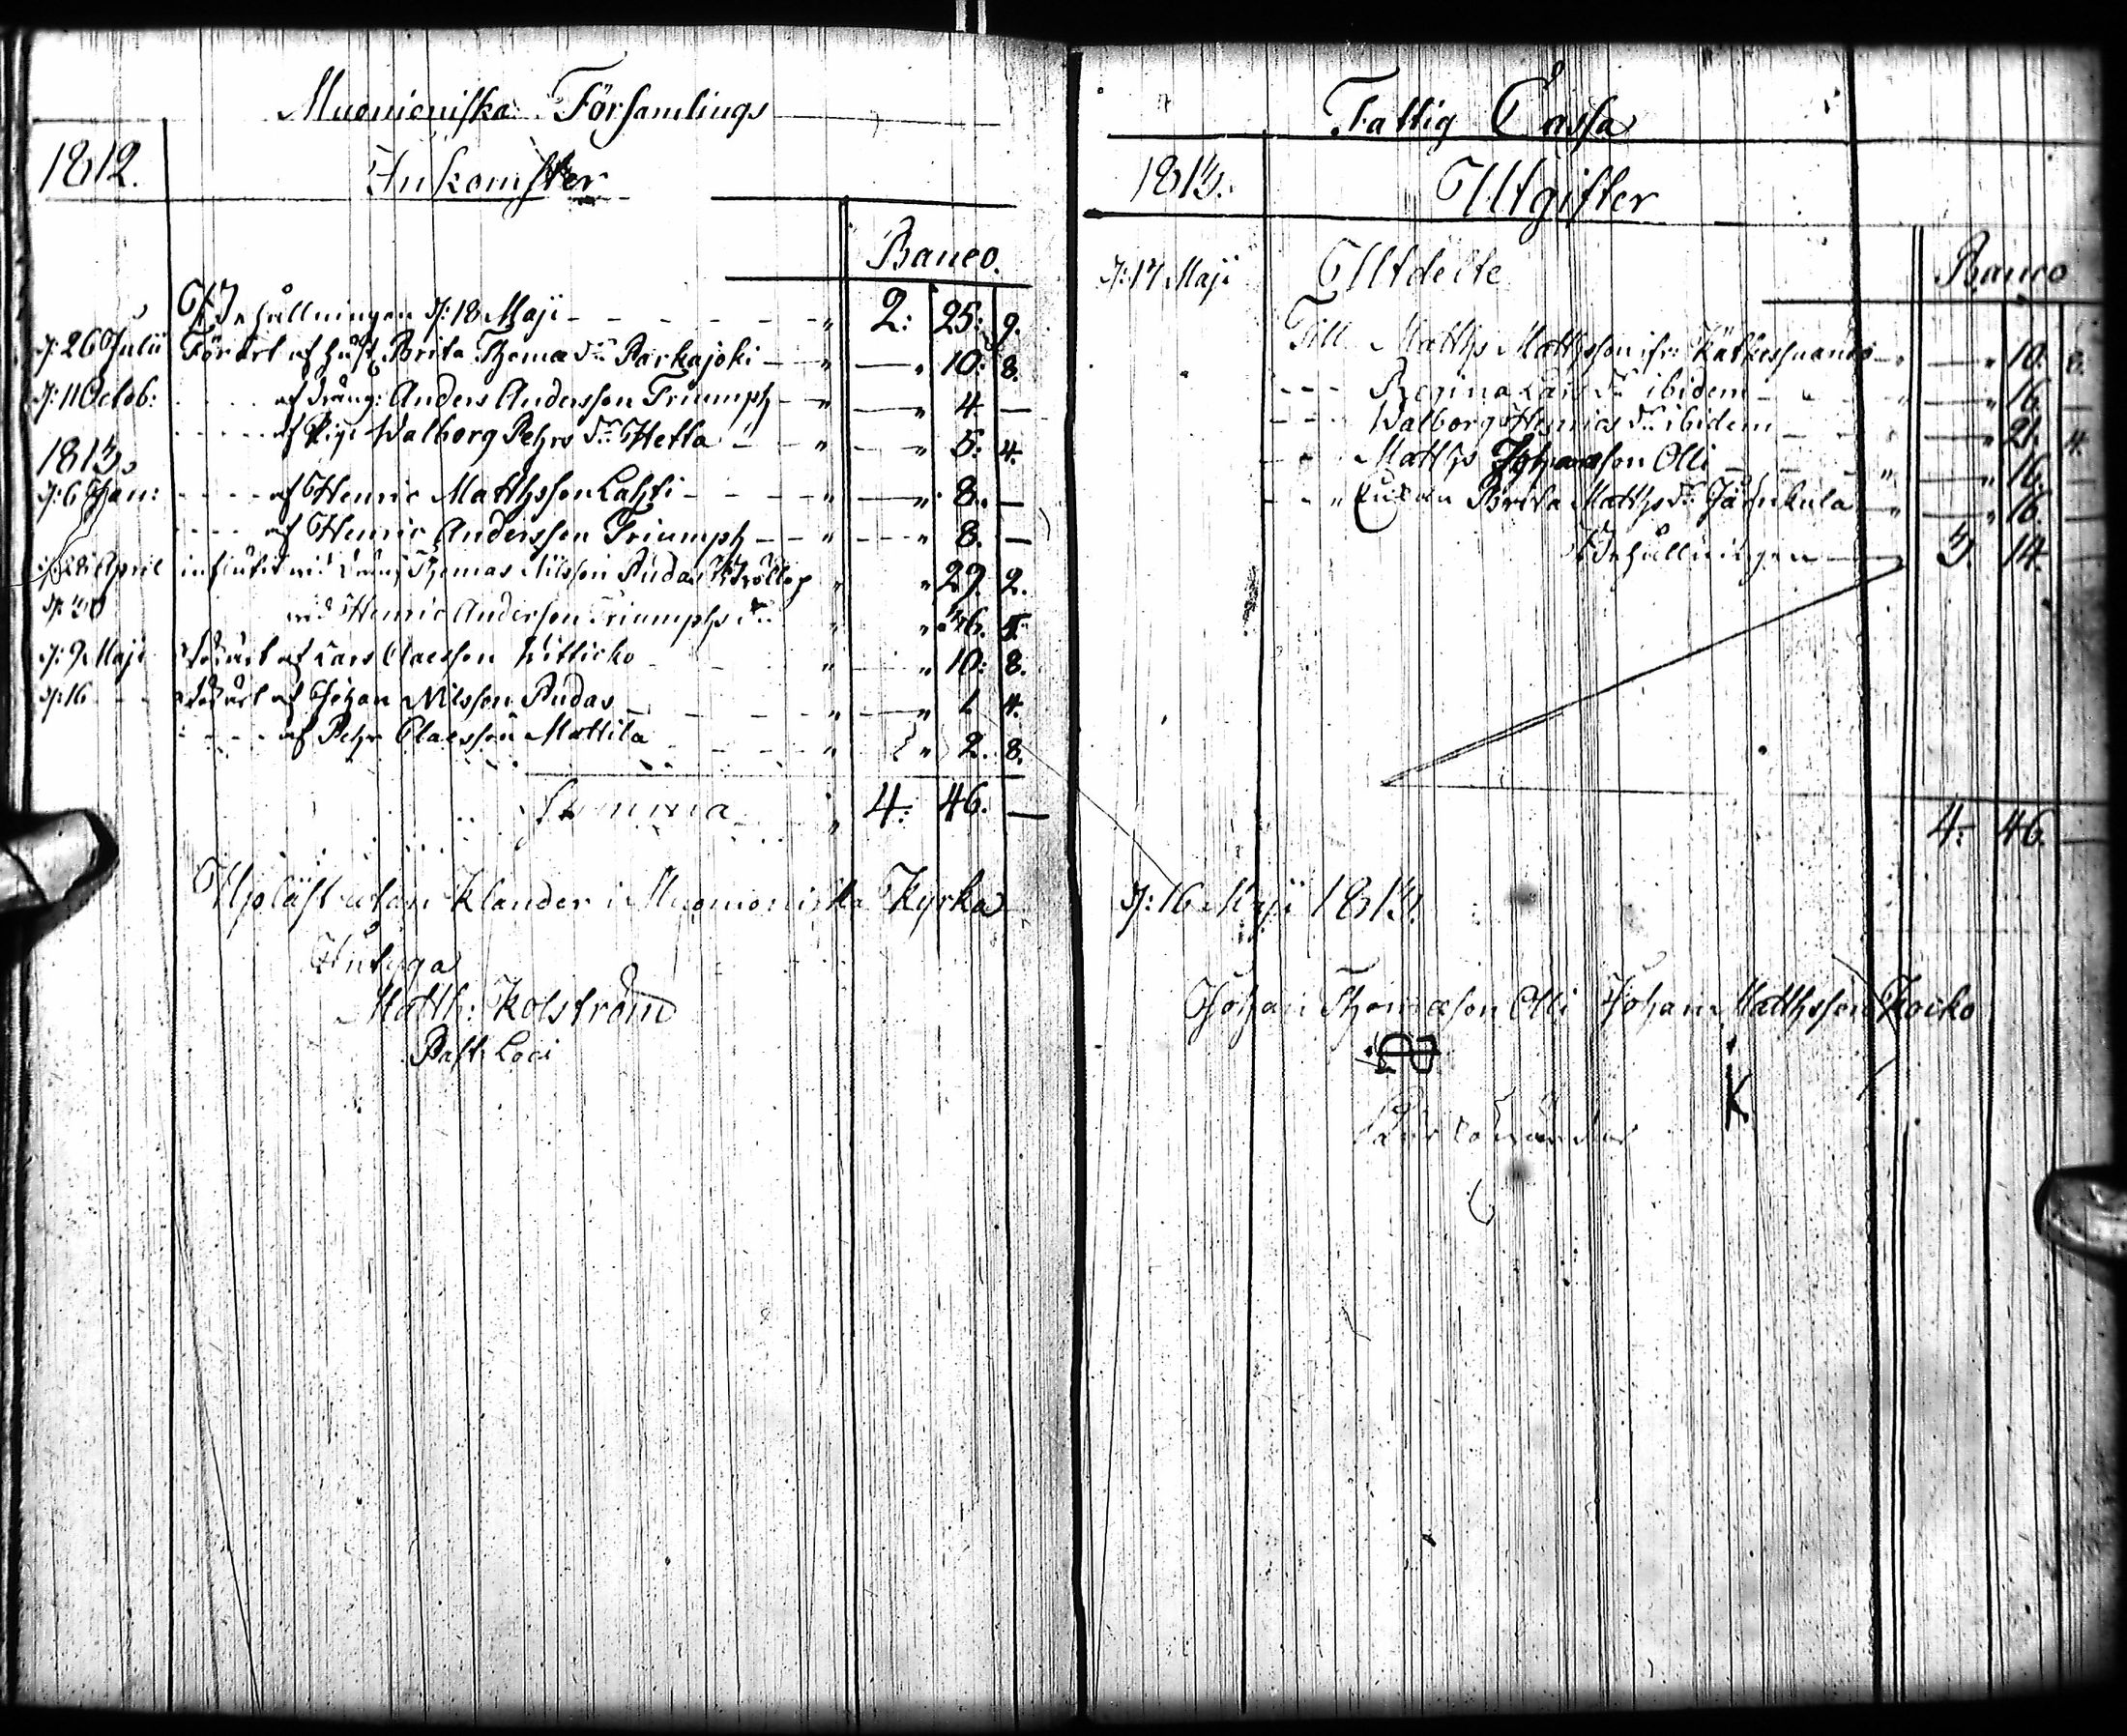 Muonioniska Församlings
1812. Inkomster
Banco.
Behållningen d: 18 Maji 2: 25: 9.
d: 26 Julii Förärt af Hust. Brita Thomæ dr Parkajoki " — " 10: 8.
d: 11 Octob: af Dräng: Anders Andersson Triumph " — " 4 —
af Pig: Walborg Pehrs dr Hetta " — " 5: 4.
1813.
d: 6 Jan: af Henric Matthsson Lahti " — " 8. —
af Henric Andersson Triumph " — " 8. —
d: 28 April influtit vid Thomas Nilsson Rudas Bröllop " " 29. 2.
d: 30 vid Henric Andersson Triumphs d:o " " 36. 5.
d: 9 Maji Förärt af Lars Claesson Kitticko " " 10: 8.
d: 16 Förärt af Johan Nilsson Rudas " — " 1 4.
af Pehr Claesson Mattila " " 2. 8.
Summa " 4: 46. —
Upläst utan Klander i Muonioniska Kyrka
Intyga
Matth: Kolström
Past. Loci
Fattig Cassa
1813. Utgifter
Banco
d: 17 Maji Utdelte
Till Matths Mattsson ifr: Kätkesuando " — " 10: 8.
Regina Lars dr ibidem " — " 16. —
Walborg Henrics dr ibidem " — " 21. 4.
Matths Johansson Olli " — " 16. —
" Enkan Brita Matths dr " — " 16. —
Behållningen 3. 14. —
4: 46. —
d: 16 Maji 1813.
Johan Thomæson Olli Johan Matthsson Kocko
K